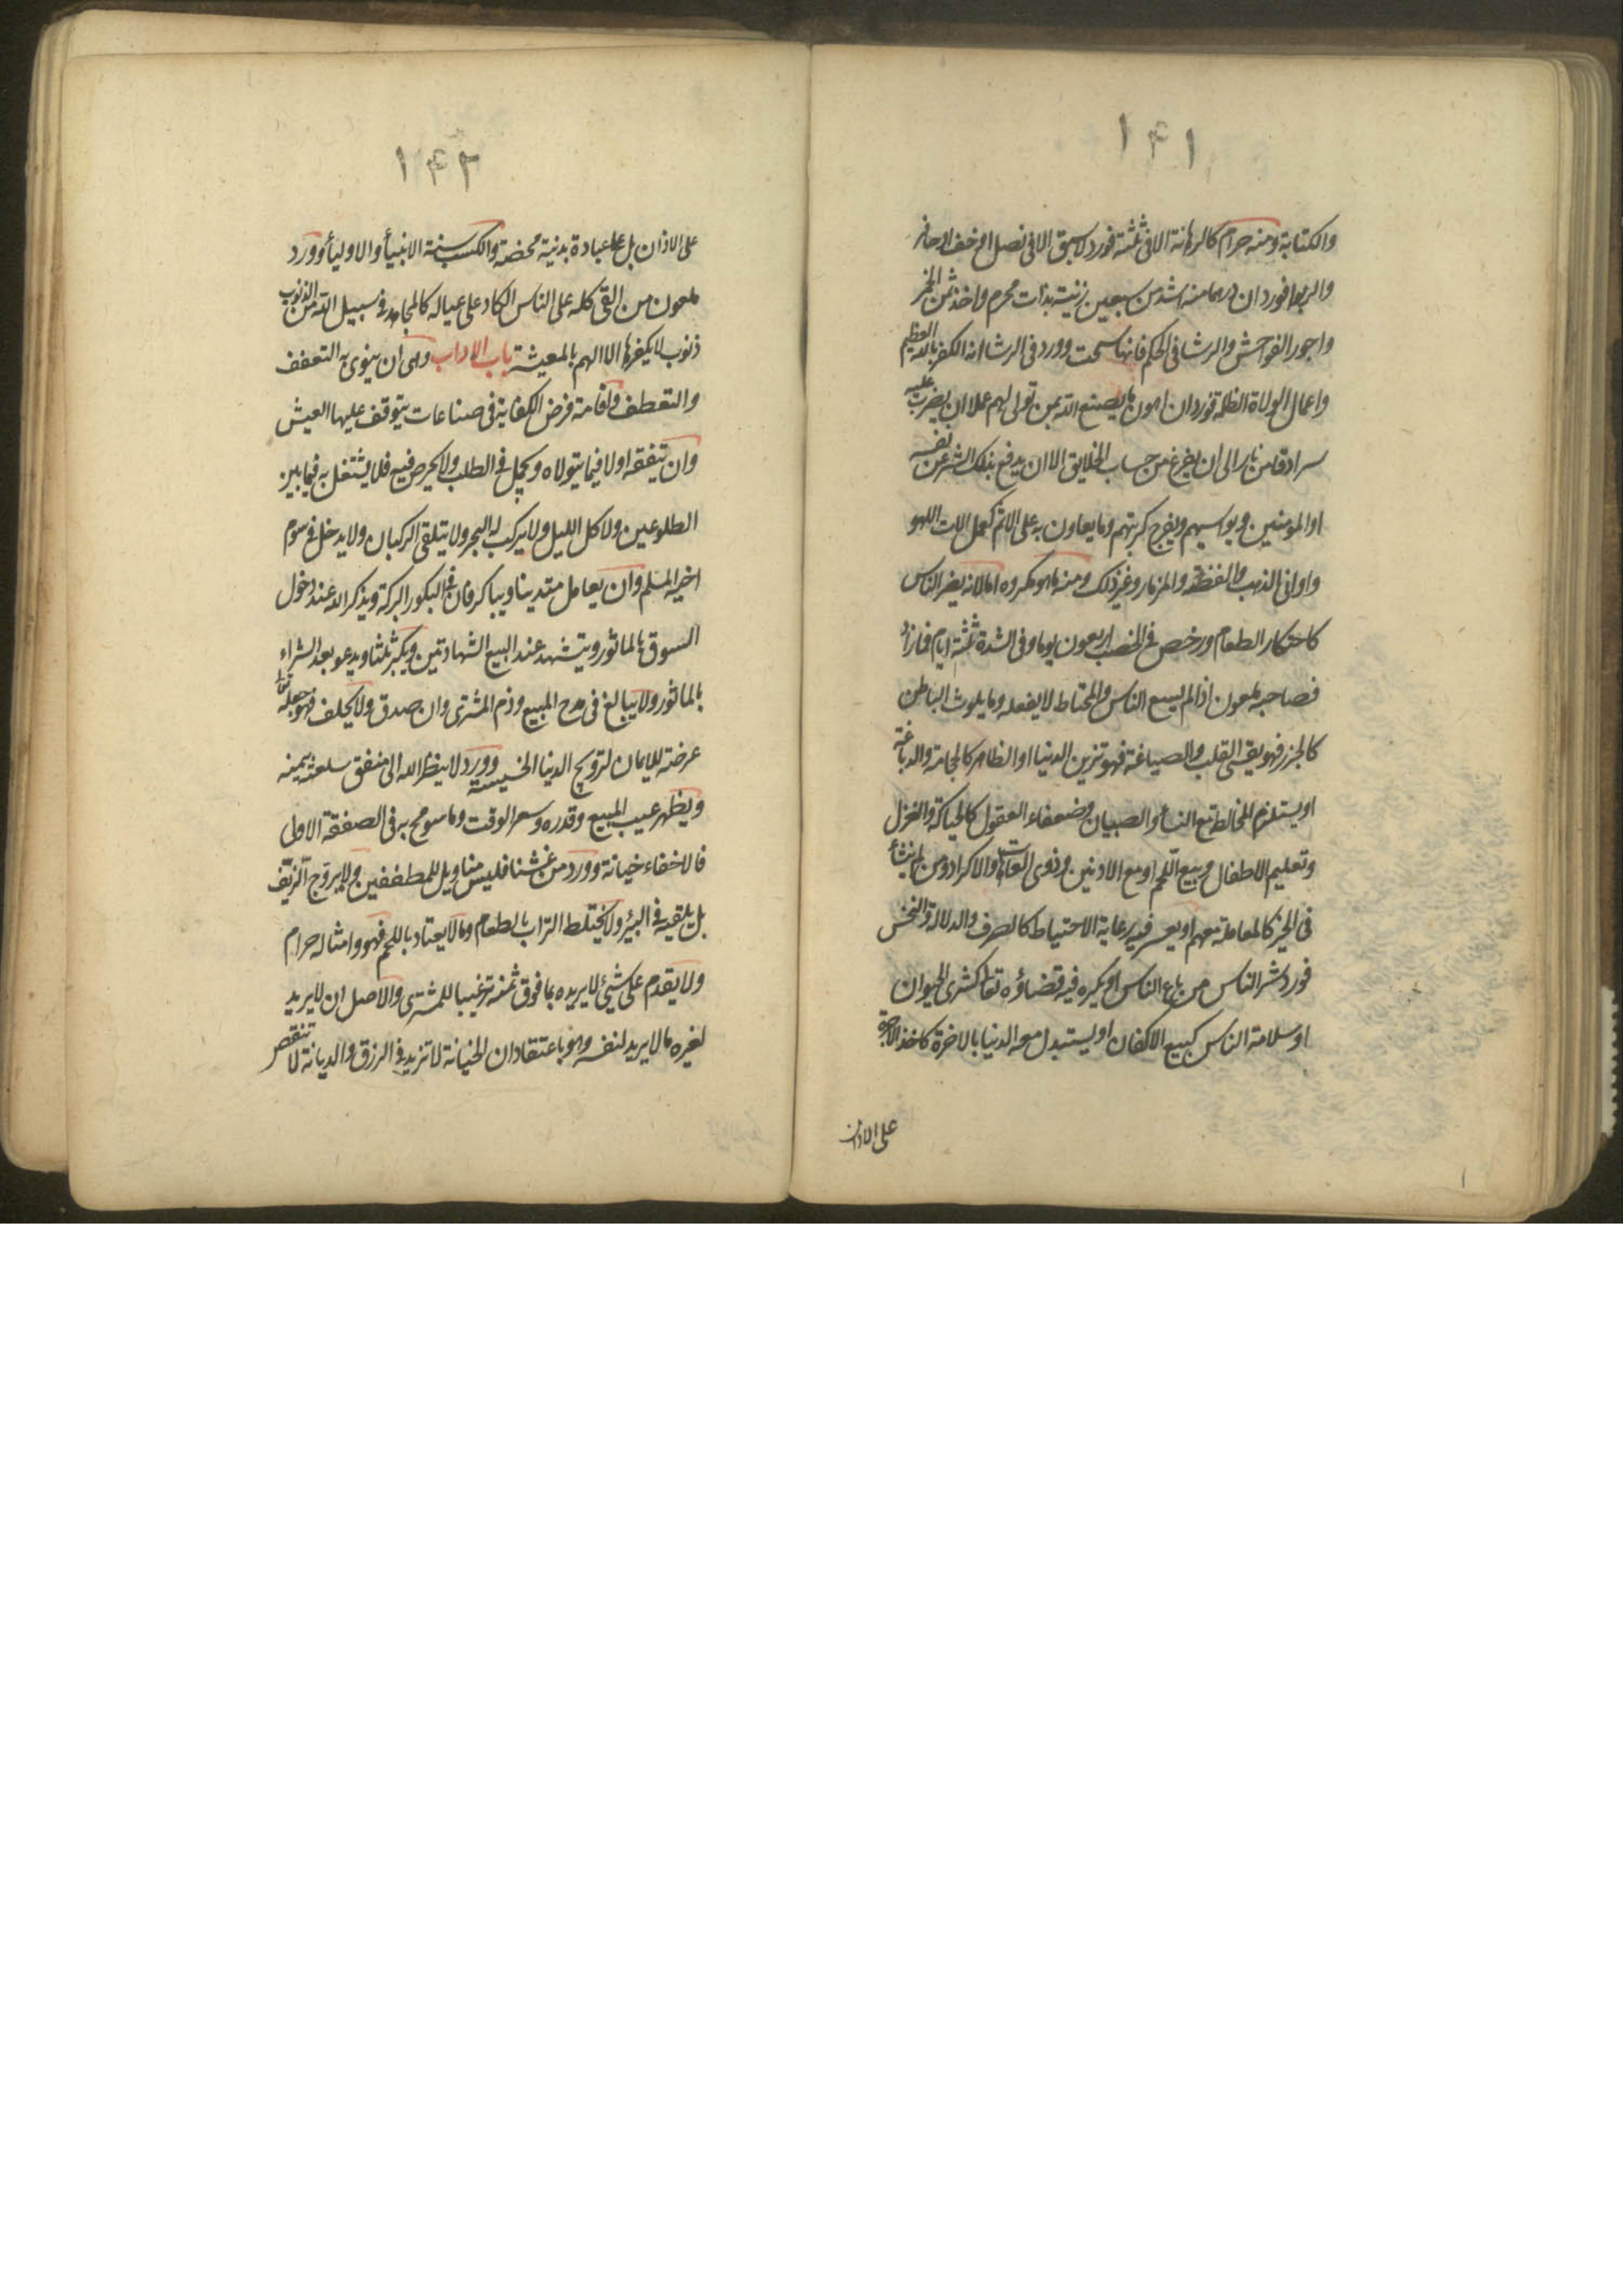 ۱۴۱
والكتابة ومنه حرام كالرهانة الا فى ثلثة فورد لا سبق الا فى نصل او خف او حافر
والربوا فورد ان درهما منه اشد من سبعين زنية بذات محرم واخذ ثمن الخمر
واجور الفواحش والرشا فى الحكم فانها سحت وورد فى الرشا انه الكفر بالله العظيم
واعمال الولاة الظلمة فورد ان اهون ما يصنع الله بمن تولى لهم عملا ان يضرب عليه
سرادقا من نار الى ان يفرغ من حساب الخلايق الا ان يدفع بذلك الشر عن نفسه
او المومنين ويواسيهم ويفرج كربتهم وما يعاون به على الاثم كعمل الات اللهو
واوانى الذهب والفضة والمزمار وغير ذلك ومنه ما هو مكروه اما لانه يضر الناس
كاحتكار الطعام ورخص فى الخصب اربعون يوما وفى الشدة ثلثة ايام فما زاد
فصاحبه ملعون اذا لم يسع الناس والمحتاط لا يفعله وما يلوث الباطن
كالجزر فهو يقسى القلب والصياغة فهو تزين الدنيا او الظاهر كالحجامة والدباغة
او يستلزم المخالطة مع النسأ والصبيان وضعفاء العقول كالحياكة والغزل
وتعليم الاطفال وبيع اللحم او مع الادنين وذوى العاهات والاكراد ومن لم ينشأ
فى الخير كالمعاملة معهم او يعسر فيه رعاية الاحتياط كالصرف والدلالة والنخس
فورد شر الناس من باع الناس او يكره فيه قضاؤه تعا كشرى الحيوان
او سلامة الناس كبيع الاكفان او يستبدل معه الدنيا بالاخرة كاخذ الاجرة
على الاذان
۱۴۲
على الاذان بل على عبادة بدنية محضة والكسب سنة الانبيأ والاوليأ وورد
ملعون من القى كله على الناس الكاد على عياله كالمجاهد فى سبيل الله من الذنوب
ذنوب لا يكفرها الا الهم بالمعيشة باب الاداب وهى ان ينوى به التعفف
والتعطف واقامة فرض الكفاية فى صناعات يتوقف عليها العيش
وان يتفقه اولا فيما يتولاه ويجمل فى الطلب ولا يحرص فيه فلا يشتغل به فيما بين
الطلوعين ولا كل الليل ولا يركب له البحر ولا يتلقى الركبان ولا يدخل فى سوم
اخيه المسلم وان يعامل متدينا ويباكر فان فى البكور البركة ويذكر الله عند دخول
السوق بالماثور ويتشهد عند البيع الشهادتين ويكبر ثلثا ويدعو بعد الشراء
بالماثور ولا يبالغ فى مدح المبيع وذم المشترى وان صدق ولا يحلف فهو جعله تعا
عرضة للايمان لترويج الدنيا الخسيسة وورد لا ينظر الله الى منفق سلعته بيمينه
ويظهر عيب المبيع وقدره وسعر الوقت وما سومح به فى الصفقة الاولى
فالاخفاء خيانة وورد من غشنا فليس منا ويل للمطففين ولا يروّج الزيّف
بل يلقيه فى البئر ولا يختلط التراب بالطعام وما لا يعتاد باللحم فهو وامثاله حرام
ولا يقدم على شئ لا يريده بما فوق ثمنه ترغيبا للمشترى والاصل ان لا يريد
لغيره ما لا يريد لنفسه وهو باعتقاد ان الخيانة لا تزيد فى الرزق والديانة لا تنقص